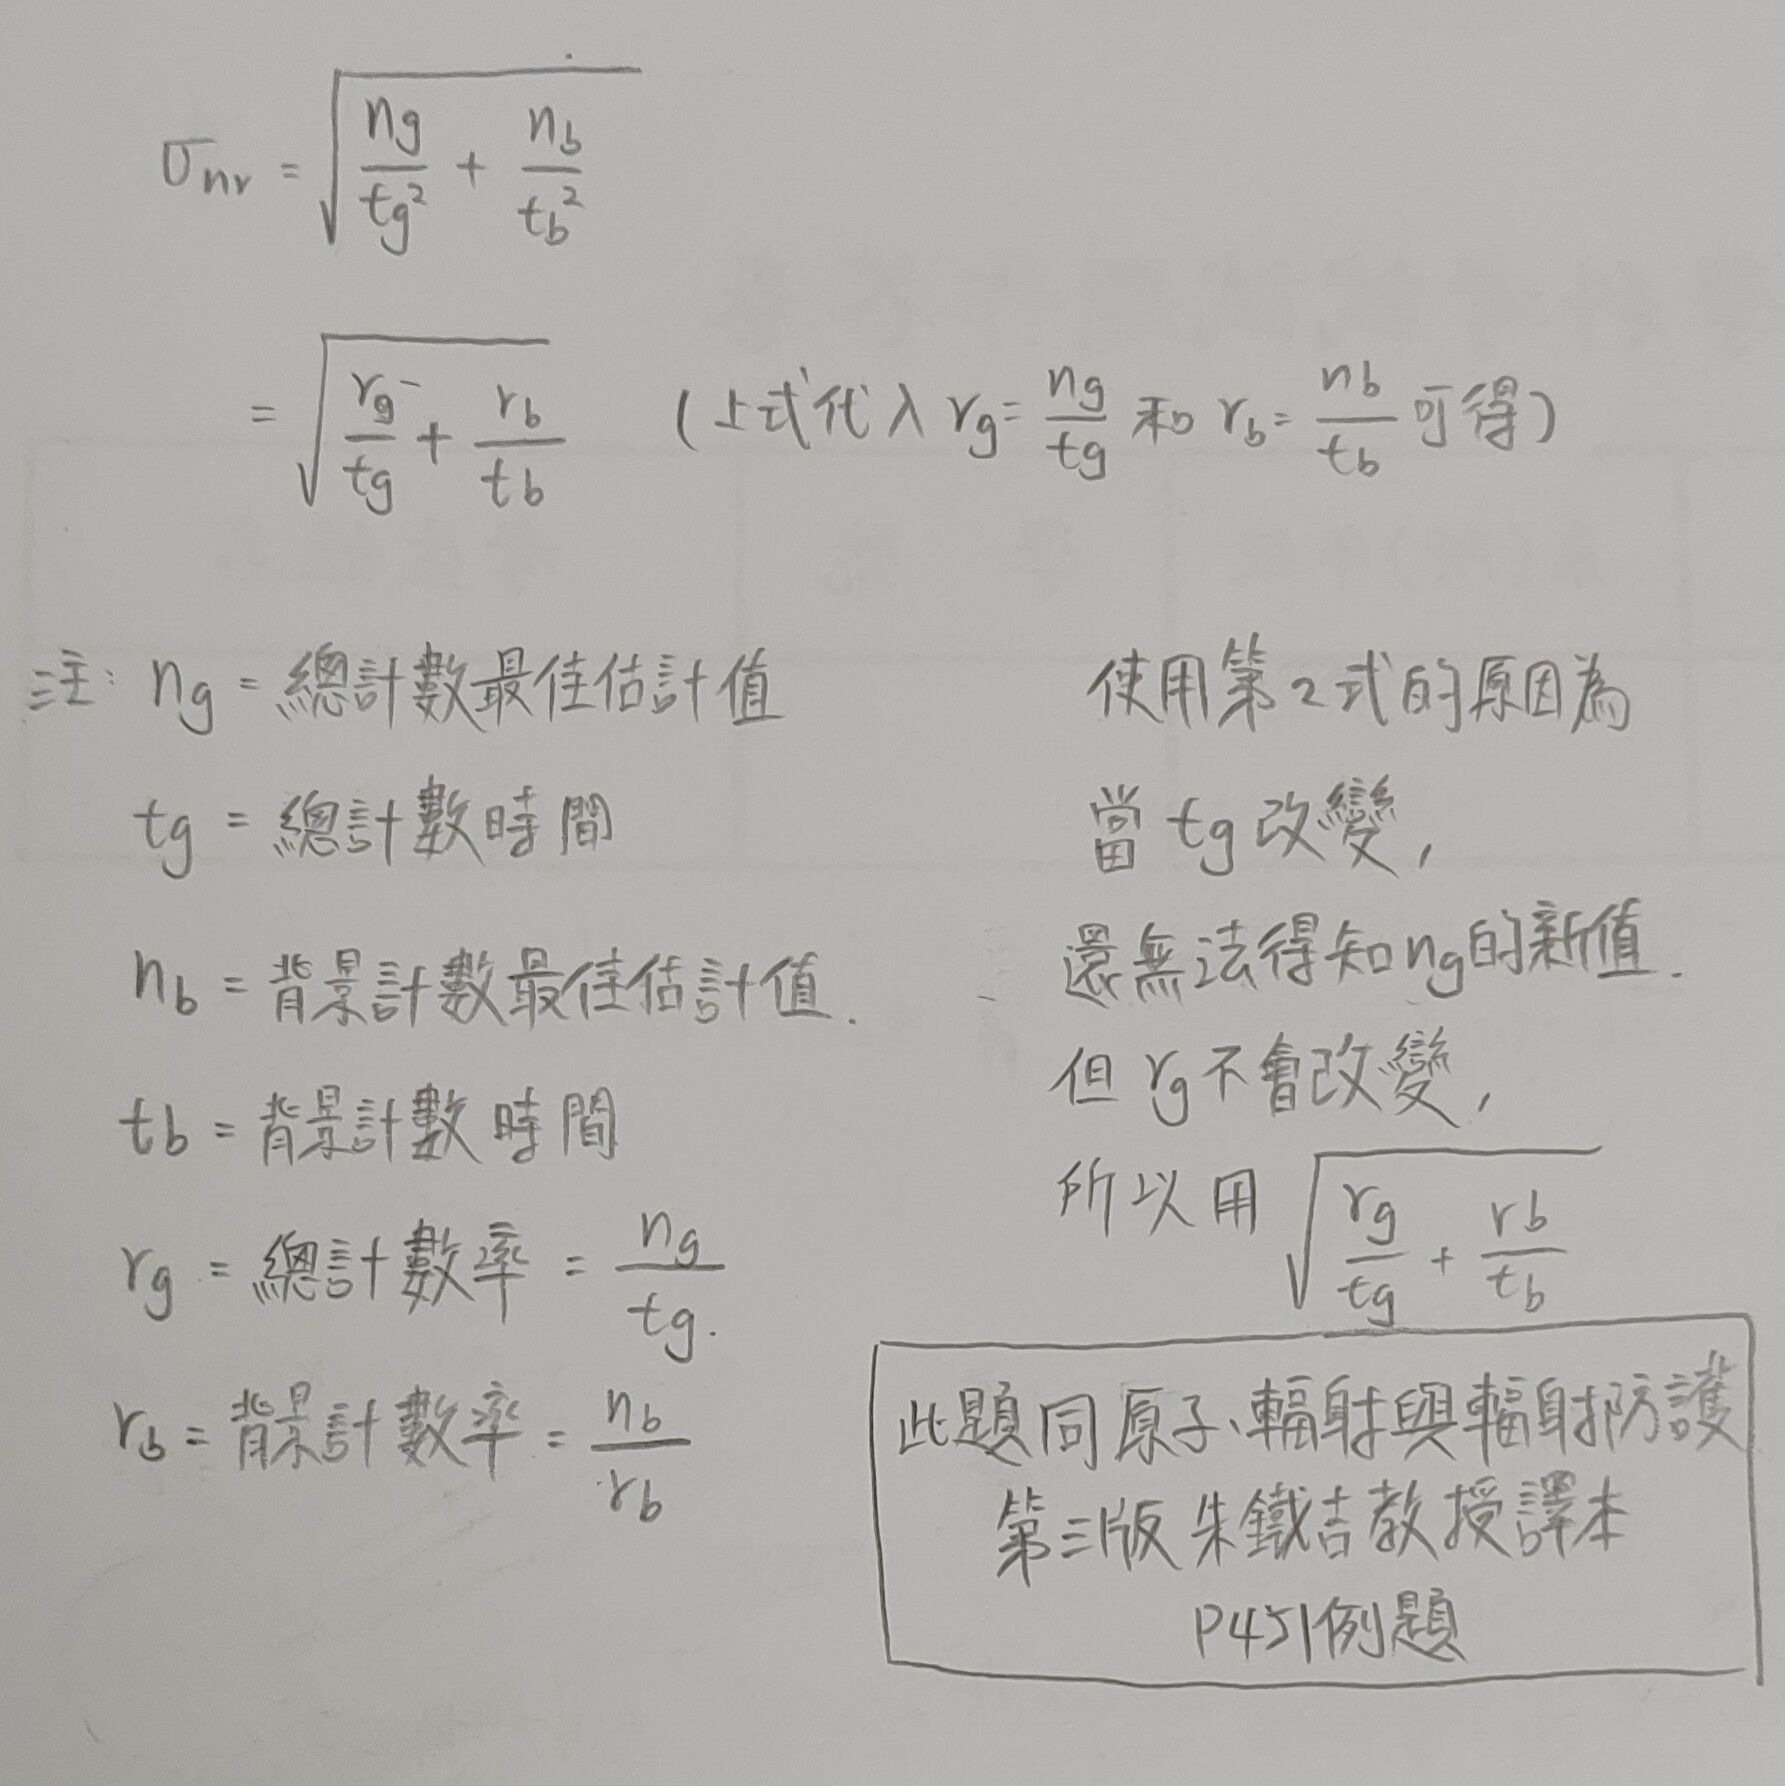 σnr = √(ng/tg² + nb/tb²)
= √(rg/tg + rb/tb) (上式代入 rg = ng/tg 和 rb = nb/tb 可得)
註: ng = 總計數最佳估計值
tg = 總計數時間
nb = 背景計數最佳估計值.
tb = 背景計數時間
rg = 總計數率 = ng/tg.
rb = 背景計數率 = nb/rb
使用第2式的原因為
當 tg 改變,
還無法得知ng的新值.
但 rg 不會改變,
所以用 √(rg/tg + rb/tb)
此題同原子、輻射與輻射防護
第三版 朱鐵吉教授譯本
P451例題